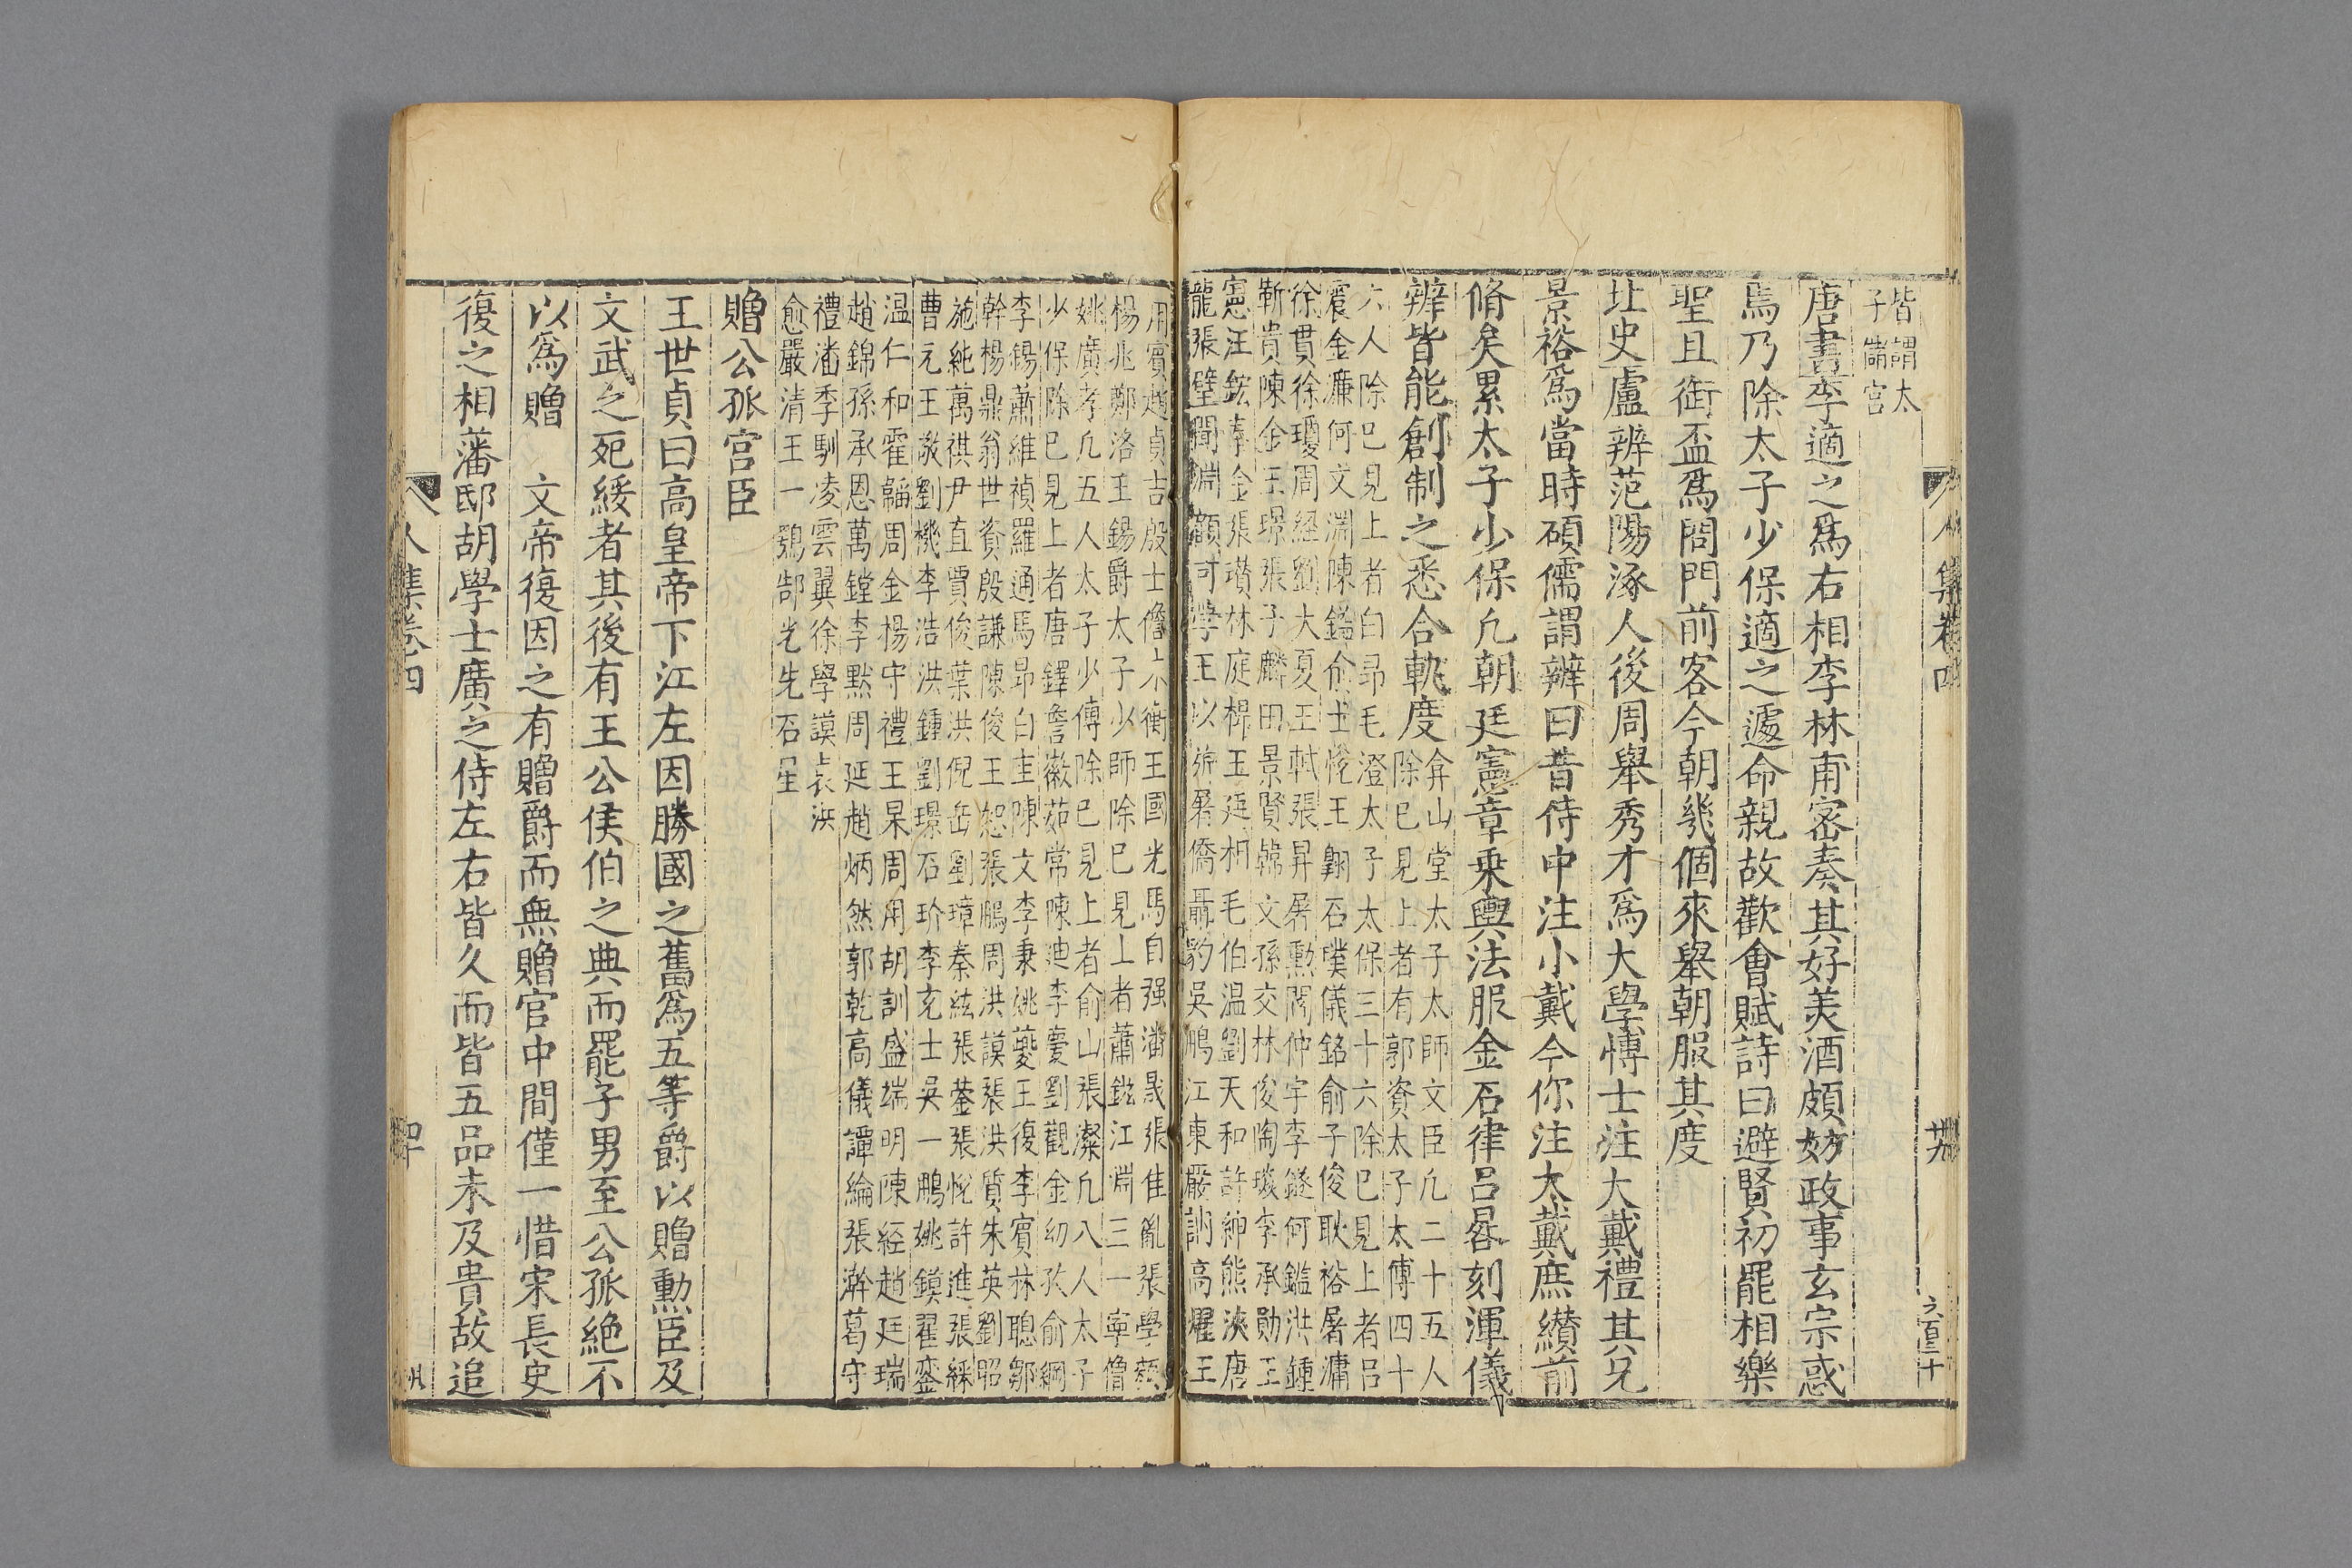 人集卷四
卅九
六百三十
皆謂太
子官
唐書李適之爲右相李林甫密奏其好美酒頗妨政事玄宗惑
焉乃除太子少保適之遽命親故歡會賦詩曰避賢初罷相樂
聖且銜盃爲問門前客今朝幾個來舉朝服其度
北史盧辨范陽涿人後周舉秀才爲大學博士注大戴禮其兄
景裕爲當時碩儒謂辨曰昔侍中注小戴今你注大戴庶纉前
脩矣累太子少保凡朝廷憲章乗輿法服金石律呂晷刻渾儀
辨皆能創制之悉合軌度
弇山堂太子太師文臣凡二十五人
除已見上者有郭資太子太傅四十
六人除已見上者白昂毛澄太子太保三十六除已見上者呂
震金濂何文淵陳鎰俞士悅王翺石璞儀銘俞子俊耿裕屠滽
徐貫徐瓊周經劉大夏王軾張昇屠勳閔仲宇李鐩何鑑洪鍾
靳貴陳金王璟張子麟田景賢韓文孫交林俊陶琰李承勛王
憲汪鋐秦金張瓚林庭㭿王廷相毛伯温劉天和許紳熊浹唐
龍張璧聞淵顧可學王以旂屠僑聶豹吳鵬江東嚴訥高燿王
用賓趙貞吉殷士儋朩衡王國光馬自强潘晟張佳胤張學顏
楊兆鄭洛王錫爵太子少師除已見上者蕭鋐江淵三一寧儈
姚廣孝凡五人太子少傅除已見上者俞山張燦凡八人太子
少保除已見上者唐鐸詹徽茹常陳迪李慶劉觀金幼孜俞綱
李錫蕭維禎羅通馬昻白圭陳文李秉姚夔王復李賓林聰鄒
幹楊鼎翁世資殷謙陳俊王恕張鵬周洪謨張洪質朱英劉昭
施純萬祺尹直賈俊葉淇倪岳劉璋秦紘張鎣張悅許進張綵
曹元王敞劉機李浩洪鍾劉璟石玠李充士吳一鵬姚鏌翟鑾
温仁和霍韜周金楊守禮王杲周用胡訓盛端明陳經趙廷瑞
趙錦孫承恩萬鏜李默周延趙炳然郭乾高儀譚綸張瀚葛守
禮潘季馴凌雲翼徐學謨袁洪
愈嚴清王一鶚郜光先石星
贈公孤宫臣
王世貞曰高皇帝下江左因勝國之舊爲五等爵以贈勳臣及
文武之死綏者其後有王公侯伯之典而罷子男至公孤絶不
以爲贈　文帝復因之有贈爵而無贈官中間僅一惜宋長史
復之相藩邸胡學士廣之侍左右皆久而皆五品未及貴故追
人集卷四
四十